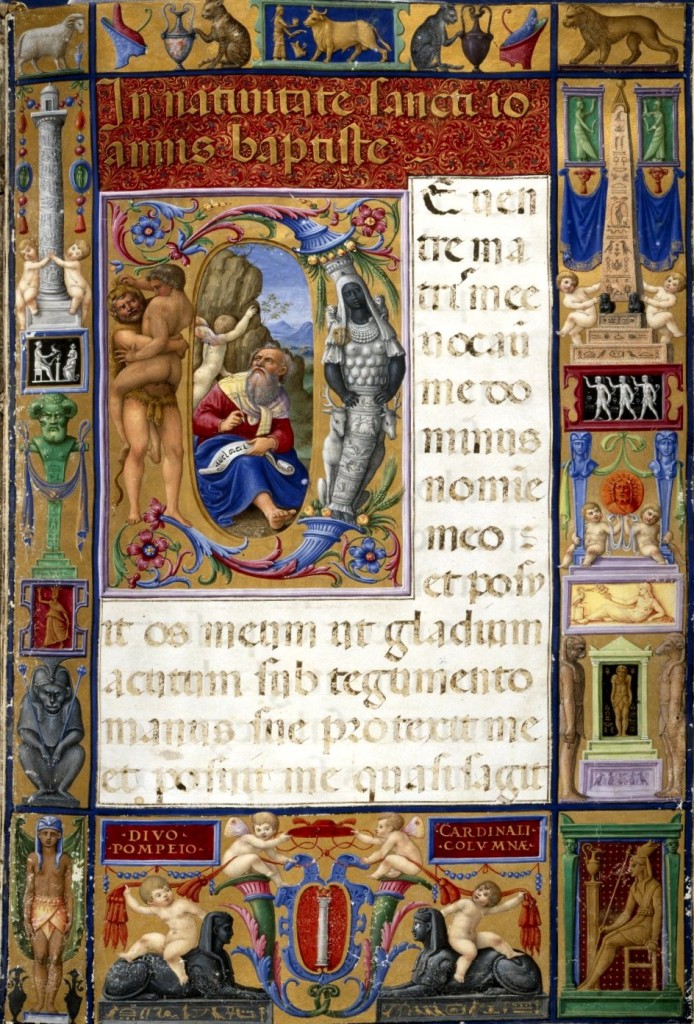 In natiuitate sancti io
annis baptiste
E uen
tre ma
tris mee
uocaui
me do
minus
nomīe
meo :
et posu
it os meum ut gladium
acutum sub tegumento
manus sue protexit me
et posuit me quasi sagit
·DIVO·
POMPEIO·
CARDINALI·
·COLVMNÆ·